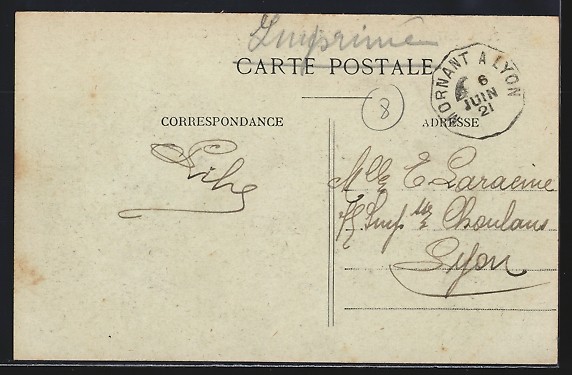 Imprimé
CARTE POSTALE
MORNANT A LYON
6
JUIN
21
8
CORRESPONDANCE
ADRESSE
Mlle E Laracine
Imp Choulans
Lyon